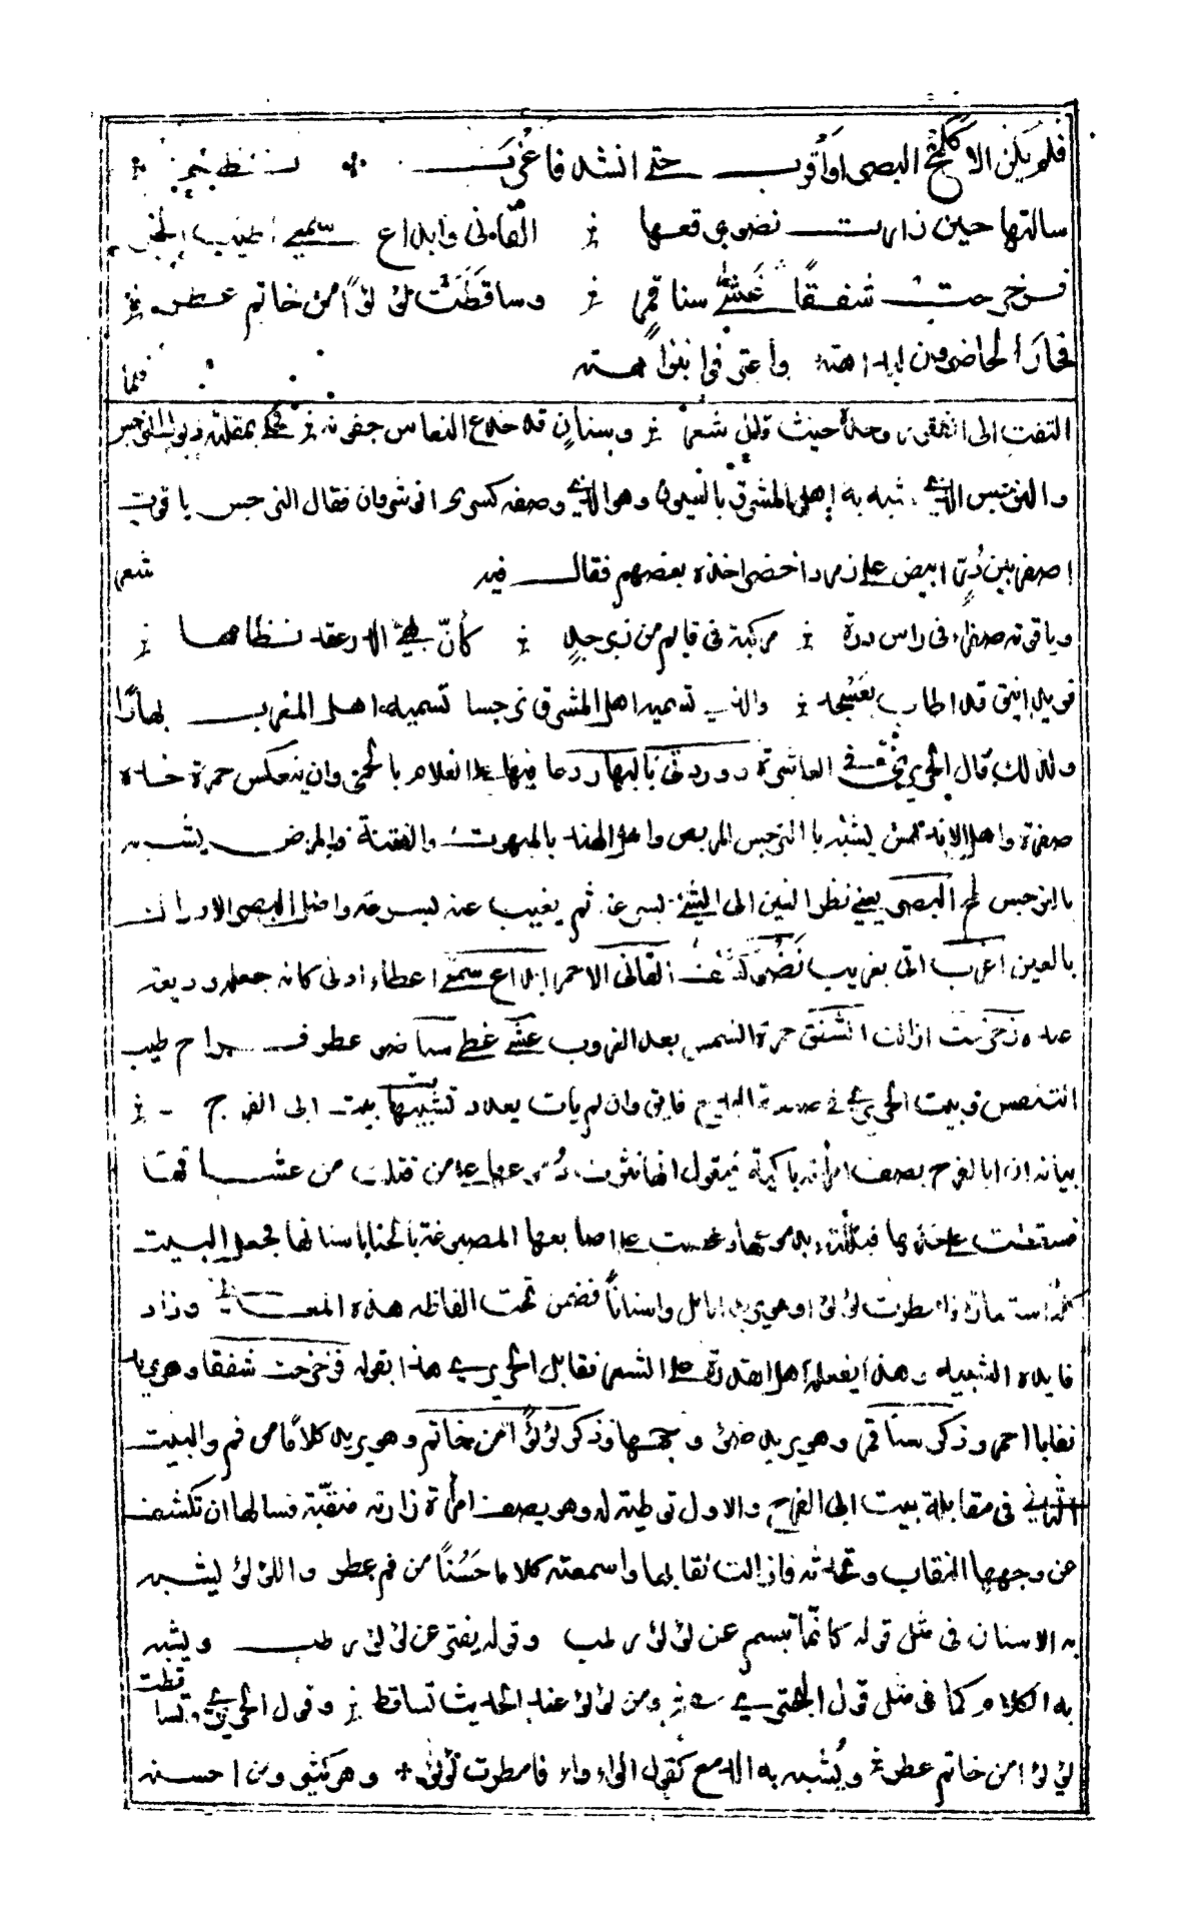 فلم يكن الا كلمح البصر او اقرب حتى انشد فاغرب نظم
سالتها حين زارت نضو برقعها القاني وايداع سمعي اطيب الخبر
فزحزحت شفقًا غشى سنا قمر وساقطت لؤلؤًا من خاتم عطر
فحار الحاضرون لبداهته واعترفوا بنزاهته فلما
التفت الى حيث قال شعر وسنان قد خدع النعاس جفونه فحكى بمقلته ذبول النرجس
والنرجس الذي شبه به اهل المشرق بالعيون وهو الذي وصفه كسرى انوشروان فقال النرجس ياقوت
اصفر بين در ابيض على زمرد اخضر اخذه بعضهم فقال فيه شعر
وياقوته صفراء في راس درة مركبة في قايم من زبرجد كأن الدر عقد نظامها
والذي تسميه اهل المشرق نرجسا تسميه اهل المغرب بهارًا
ولذلك قال الحريري في العاشرة وردتي بالبهار دعا فيها على الغلام وان ينعكس حمرة خده
صفرة واهل يشبه بالنرجس المريض واهل الهند بالمبهوت والفتنة والمرض يشبه
بالنرجس لمح البصر يعني نظر العين الى الشئ بسرعة ثم يغيب عنه بسرعة واصل البصر الادراك
بالعين اغرب اتى بغريب نضو القاني الاحمر ايداع سمعي اعطاء اذني كانه جعله وديعة
عنده زحزحت ازالت الشفق حمرة الشمس بعد الغروب غشى غطى سنا ضو عطر طيب
التنفس وبيت الحريري في البديع فايق وان لم يات بعدد تشبيهات بيت ابي الفرج
بيانه ان ابا الفرج يصف امرأة باكية فيقول انها نثرت دموعها على من قتلت من عشاقها
فسقطت على خديها فبلتها بدموعها وعضت على اصابعها المصبوغة بالحنا باسنانها فجعل البيت
كله استعارة فامطرت لؤلؤا وهو يريد انامل واسنانًا فضمن تحت الفاظه هذه المعاني وزاد
فايدة التشبيه وهذا يفعله اهل القدرة على الشعر فقابل الحريري هذا بقوله فزحزحت شفقا وهو يريد
نقابا احمر وذكر سنا قمر وهو يريد ضوء وجهها وذكر لؤلؤًا من خاتم وهو يريد كلامًا من فم والبيت
الثاني في مقابلة بيت ابي الفرج والاول توطية له وهو يصف امرأة زارته منقبة فسالها ان تكشف
عن وجهها النقاب وتحدثه فازالت نقابها واسمعته كلاما حسنًا من فم عطر واللؤلؤ يشبه
به الاسنان في مثل قوله كانما تبسم عن لؤلؤ رطب وقوله يفتر عن لؤلؤ رطب ويشبه
به الكلام كما في مثل قول البحتري ومن لؤلؤ عند الحديث تساقط وقول الحريري وساقطت
لؤلؤا من خاتم عطر ويشبه به الدمع كقول الواواء فامطرت لؤلؤ وهو كثير ومن احسنه